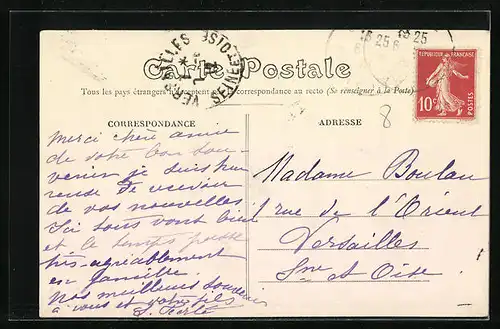 Carte Postale
Tous les pays étrangers correspondance au recto (Se renseigner à la Poste)
CORRESPONDANCE
ADRESSE
REPUBLIQUE FRANÇAISE
10c
POSTES
VERSAILLES
SEINE-ET-OISE
25
8
Merci chère amie
de votre bon sou-
venir je suis heu
de recevoir
de vos nouvelles
Ici tous vont bien
et le temps passe
très agréablement
en famille.
Nos meilleurs souvenirs
à vous et votre fils
Madame Boulau
1 rue de l'Orient
Versailles
Sne et Oise